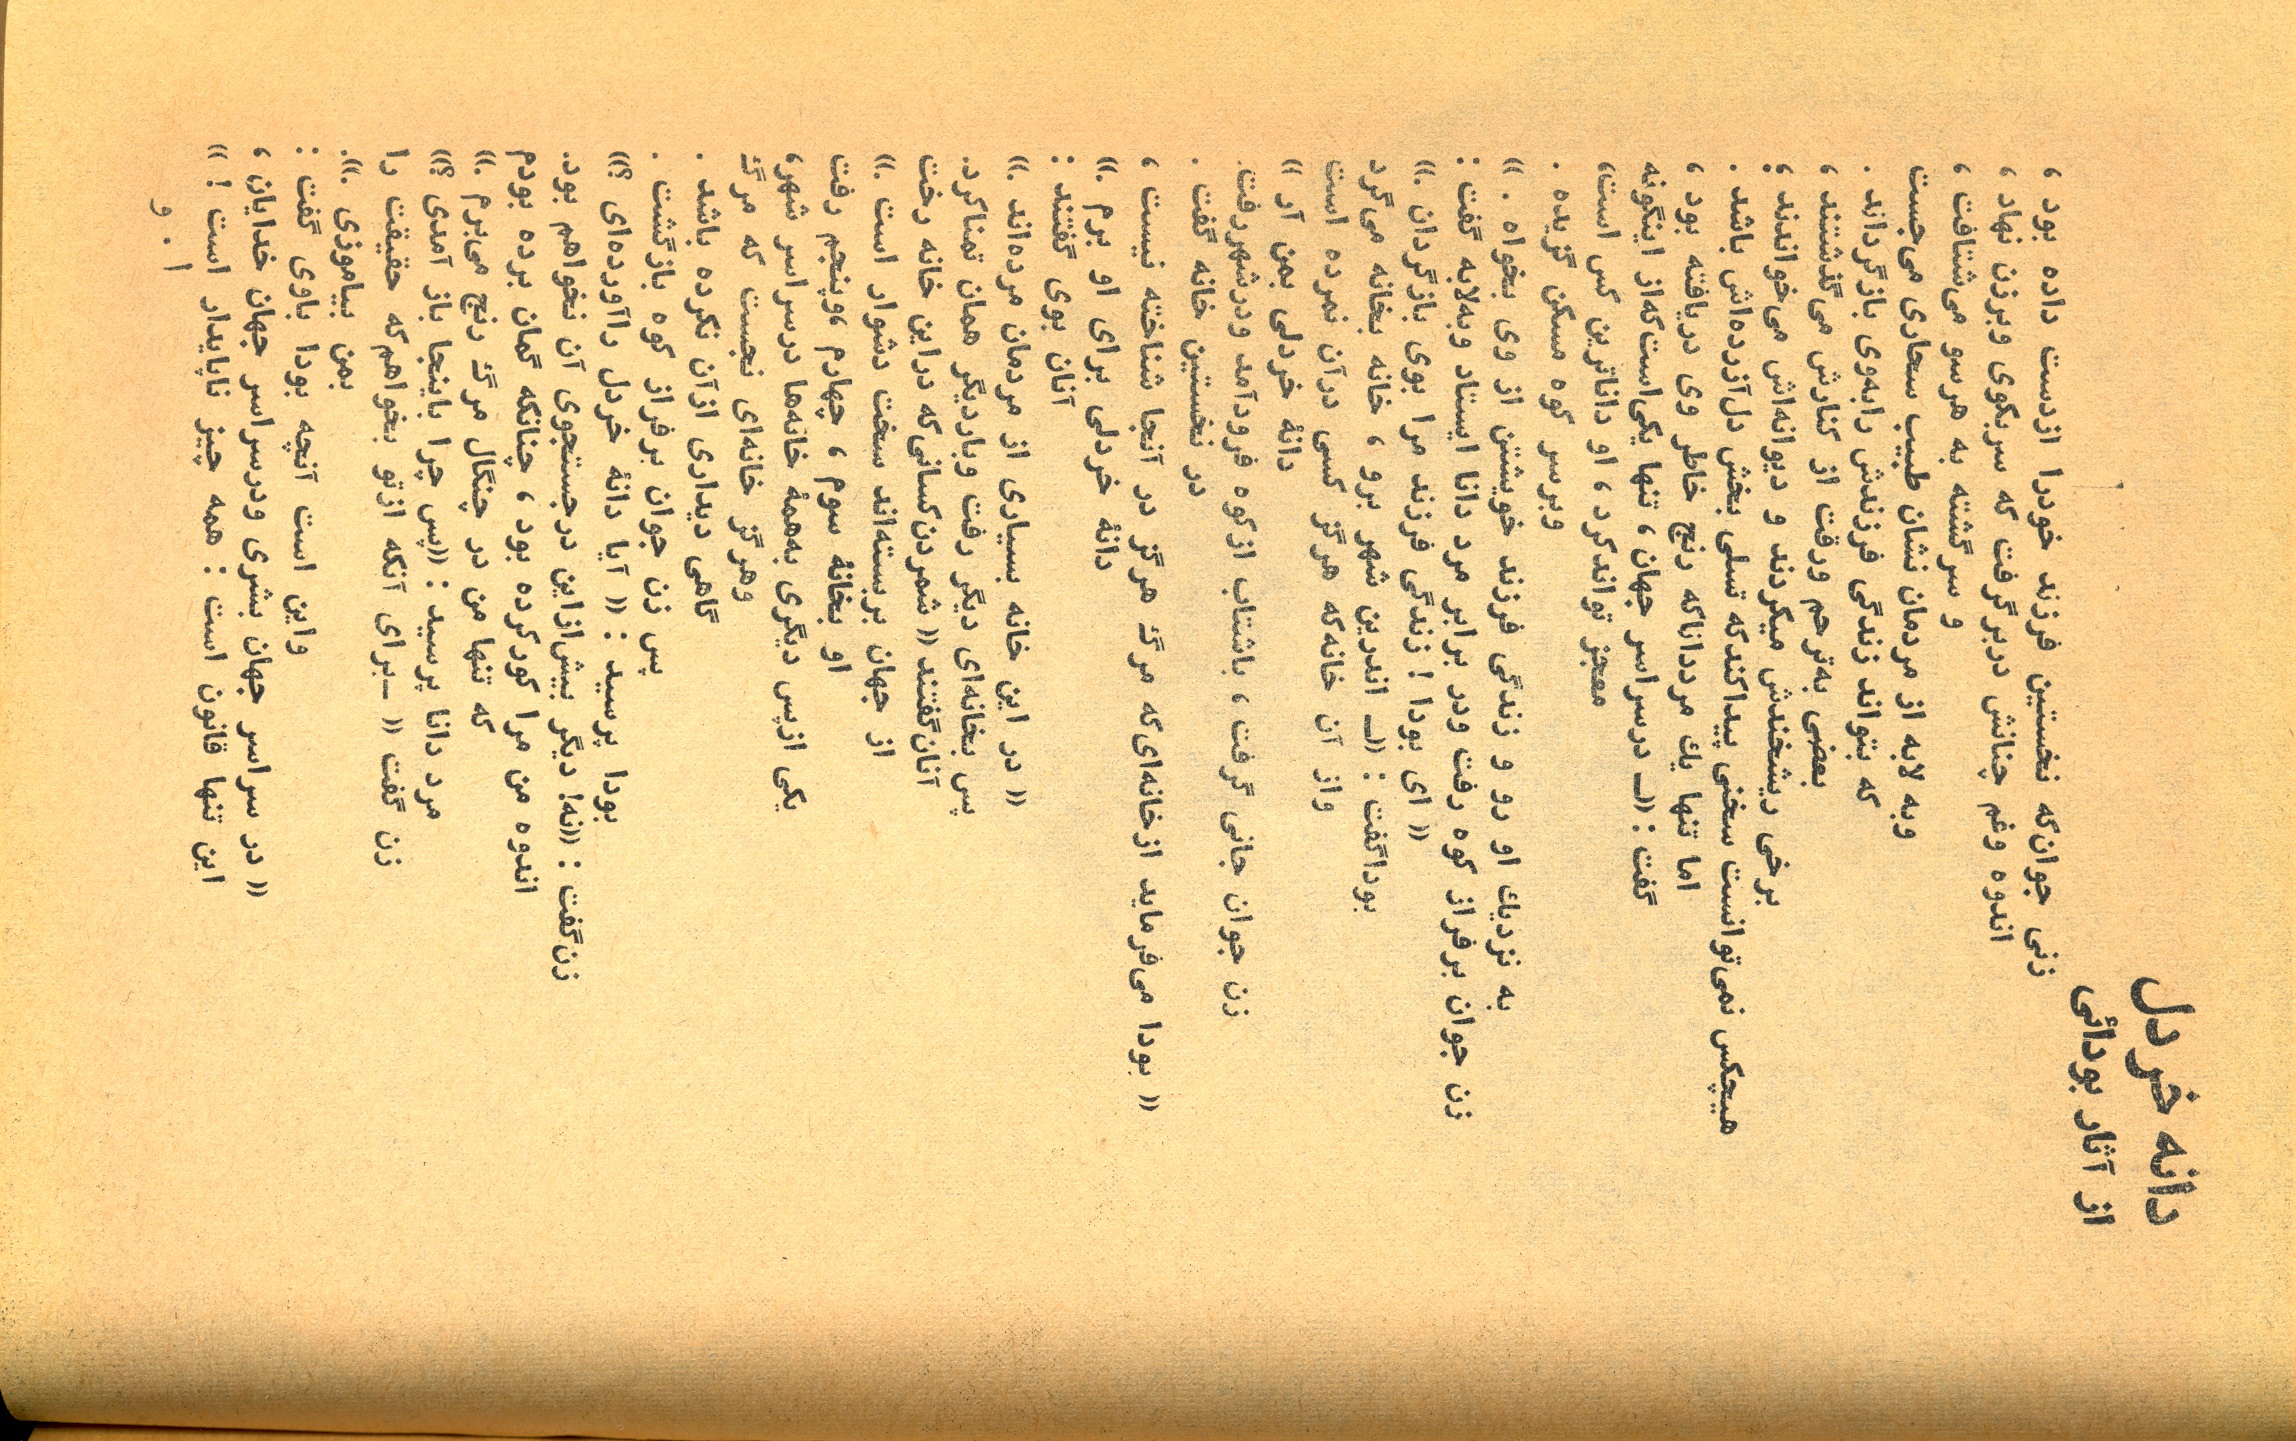 دانه خردل
از آثار بودائی
زنی جوان‌که نخستین فرزند خودرا ازدست داده بود ،
اندوه وغم چنانش دربرگرفت که سربکوی وبرزن نهاد ،
و سرگشته به هرسو می‌شتافت ،
وبه لابه از مردمان نشان طبیب سحاری می‌جست
که بتواند زندگی فرزندش رابه‌وی بازگرداند .
بعضی به‌ترحم ورقت از کنارش می‌گذشتند ،
برخی ریشخندش میکردند و دیوانه‌اش می‌خواندند ؛
هیچکس نمی‌توانست سخنی پیداکندکه تسلی بخش دل‌آزرده‌اش باشد .
اما تنها یك مرددانا‌که رنج خاطر وی دریافته بود ،
گفت : «ـ درسراسر جهان ، تنها یکی‌است‌که‌از اینگونه
معجز تواندکرد ، او داناترین کس است،
وبرسر کوه مسکن گزیده .
به نزدیك او رو و زندگی فرزند خویشتن از وی بخواه . »
زن جوان برفراز کوه رفت ودر برابر مرد دانا ایستاد وبه‌لابه گفت :
« ای بودا ! زندگی فرزند مرا بوی بازگردان .»
بوداگفت : «ـ اندرین شهر برو ، خانه بخانه می‌گرد
واز آن خانه‌که هرگز کسی درآن نمرده است
دانهٔ خردلی بمن آر »
زن جوان جانی گرفت ، باشتاب ازکوه فرودآمد ودرشهررفت.
در نخستین خانه گفت .
« بودا می‌فرماید ازخانه‌ای‌که مرگ هرگز در آنجا شناخته نیست ،
دانهٔ خردلی برای او برم .»
آنان بوی گفتند :
« در این خانه بسیاری از مردمان مرده‌اند .»
پس بخانه‌ای دیگر رفت وباردیگر همان تمناکرد.
آنان‌گفتند « شمردن‌کسانی‌که دراین خانه رخت
از جهان بربسته‌اند سخت دشوار است .»
او بخانهٔ سوم ، چهارم ،وپنجم رفت
یکی ازپس دیگری به‌همهٔ خانه‌ها درسراسر شهر،
وهرگز خانه‌ای نجست که مرگ
گاهی دیداری ازآن نکرده باشد .
پس زن جوان برفراز کوه بازگشت .
بودا پرسید : « آیا دانهٔ خردل راآورده‌ای ؟»
زن‌گفت : «نه! دیگر بیش‌ازاین درجستجوی آن نخواهم بود.
اندوه من مرا کورکرده بود ، چنانکه گمان برده بودم
که تنها من در چنگال مرگ رنج می‌برم .»
مرد دانا پرسید : «پس چرا باینجا باز آمدی ؟»
زن گفت « ـ برای آنکه ازتو بخواهم‌که حقیقت را
بمن بیاموزی .».
واین است آنچه بودا باوی گفت :
« در سراسر جهان بشری ودرسراسر جهان خدایان،
این تنها قانون است : همه چیز ناپایدار است ! »
ا . و